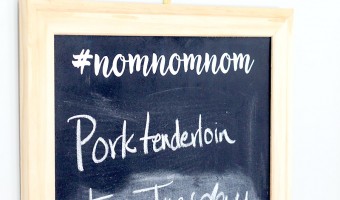 #nomnomnom
Pork tenderloin
Tuesday